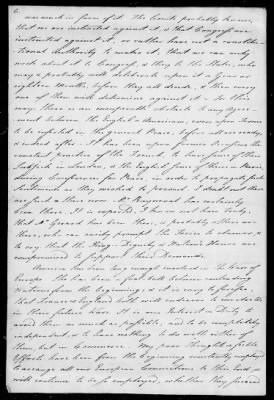 6.
was much in favor of it. The Courts probably knows,
that we are instructed against it, or that Congress are
instructed against it, or rather have not a constitu-
tional Authority to make it. That we can only
write about it to Congress, & they to the States, who
may & probably will deliberate upon it a Year or
eighteen Months, before they all decide, & then every
one of them will determine against it. In this
way, there is an insuperable obstacle to any Agree-
ment between the English & American, even upon Terms
to be inserted in the general Peace, before all are ready,
& indeed after. It has been upon former Occasions the
constant practice of the French, to have some of their
Subjects in London, & the English some of theirs in Paris,
during Conferences for Peace, in order to propagate such
Sentiments as they wished to prevail. I doubt not there
are such a there now. Mr. Rayneval has certainly
been there. It is reported, I know not how truly,
that Mr. Gerard has been there, & probably others are
there, who can easily prompt the Tories to clamour, &
to say that the King's Dignity & Nation's Honor are
compromised to support their Demands.
America has been long enough involved in the Wars of
Europe. She has been a foot ball between contending
Nations from the beginning, & it is easy to foresee,
that France & England both will endeavour to involve us
in their future Wars. It is our Interest & Duty to
avoid them as much as possible, and to be completely
independent, & to have nothing to do with either of
them, but in Commerce. My poor Thoughts & feeble
Efforts have been from the beginning constantly employed
to arrange all our European Connections to this End, &
will continue to be so employed, whether they succeed